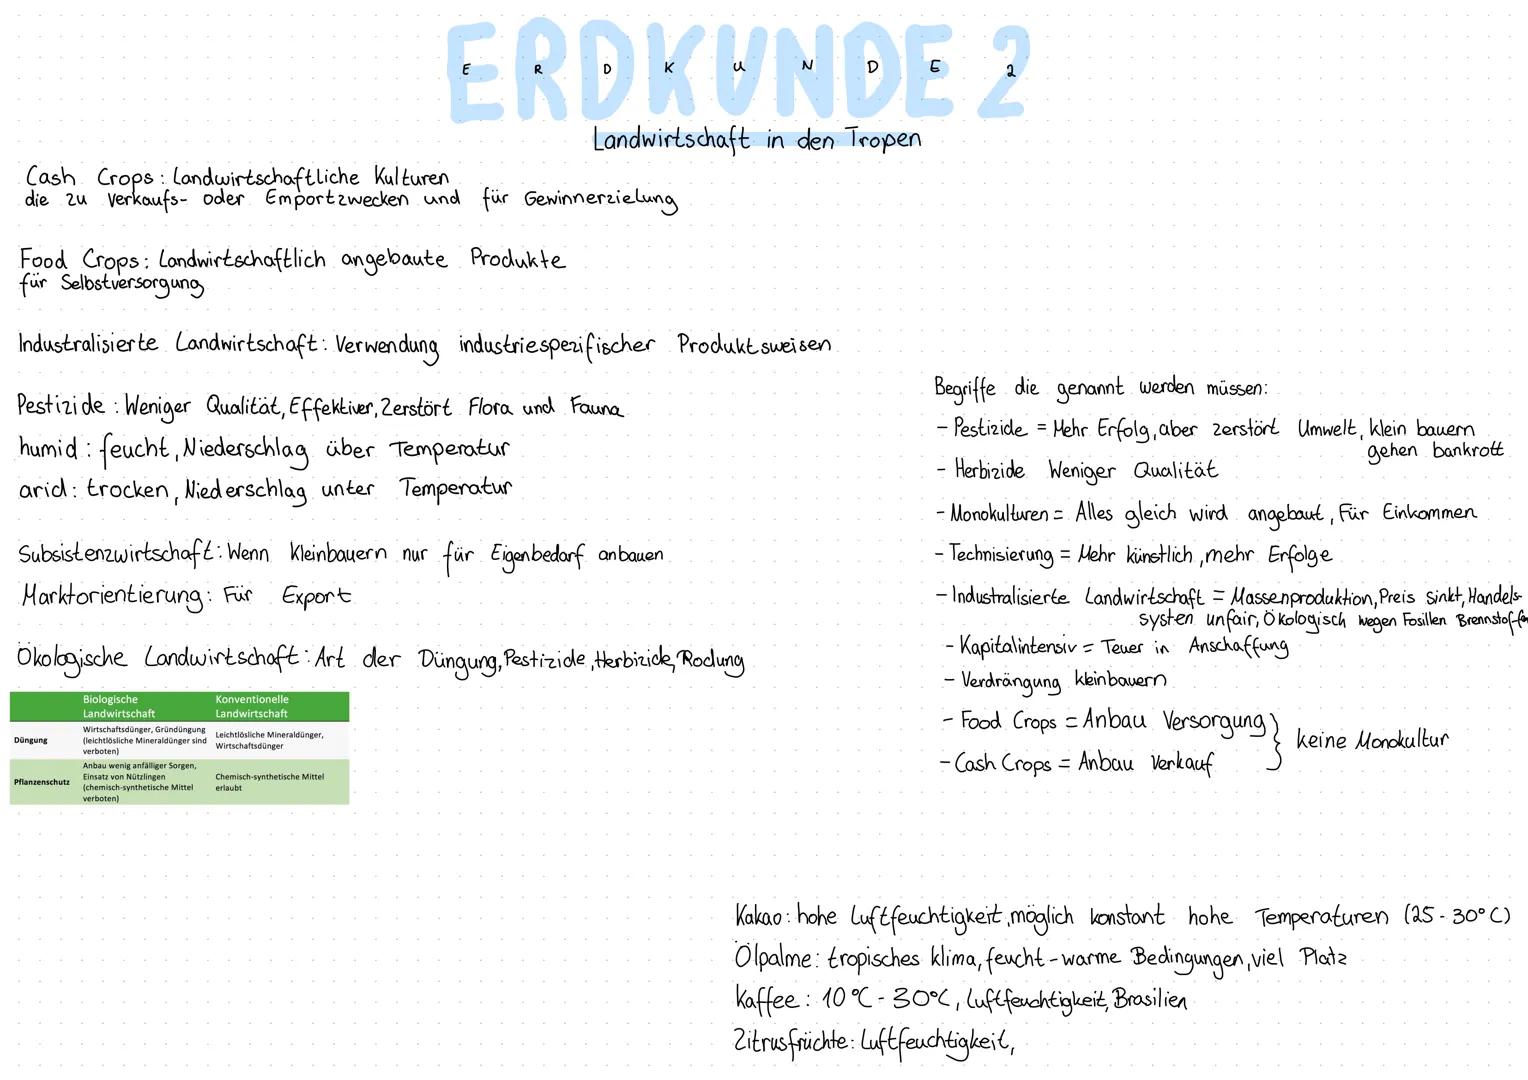 ERDKUNDE 2
E R D K U N D E 2
Landwirtschaft in den Tropen
Cash Crops: Landwirtschaftliche Kulturen
die zu Verkaufs- oder Emportzwecken und für Gewinnerzielung
Food Crops: Landwirtschaftlich angebaute Produkte
für Selbstversorgung
Industralisierte Landwirtschaft: Verwendung industriespezifischer Produktsweisen
Pestizide: Weniger Qualität, Effektiver, Zerstört Flora und Fauna
humid: feucht, Niederschlag über Temperatur
arid: trocken, Niederschlag unter Temperatur
Subsistenzwirtschaft: Wenn Kleinbauern nur für Eigenbedarf anbauen
Marktorientierung: Für Export
Ökologische Landwirtschaft: Art der Düngung, Pestizide, Herbizide, Rodung
Biologische Landwirtschaft
Konventionelle Landwirtschaft
Düngung
Wirtschaftsdünger, Gründüngung
(leichtlösliche Mineraldünger sind
verboten)
Leichtlösliche Mineraldünger,
Wirtschaftsdünger
Pflanzenschutz
Anbau wenig anfälliger Sorgen,
Einsatz von Nützlingen
(chemisch-synthetische Mittel
verboten)
Chemisch-synthetische Mittel
erlaubt
Begriffe die genannt werden müssen:
- Pestizide = Mehr Erfolg, aber zerstört Umwelt, klein bauern
gehen bankrott
- Herbizide Weniger Qualität
- Monokulturen = Alles gleich wird angebaut, Für Einkommen
- Technisierung = Mehr künstlich, mehr Erfolge
- Industralisierte Landwirtschaft = Massenproduktion, Preis sinkt, Handels-
systen unfair, Ökologisch wegen Fosillen Brennstoffen
- Kapitalintensiv = Teuer in Anschaffung
- Verdrängung kleinbauern
- Food Crops = Anbau Versorgung
- Cash Crops = Anbau Verkauf
} keine Monokultur
Kakao: hohe Luftfeuchtigkeit, möglich konstant hohe Temperaturen (25-30°C)
Ölpalme: tropisches klima, feucht-warme Bedingungen, viel Platz
Kaffee: 10°C - 30°C, Luftfeuchtigkeit, Brasilien
Zitrusfrüchte: Luftfeuchtigkeit,